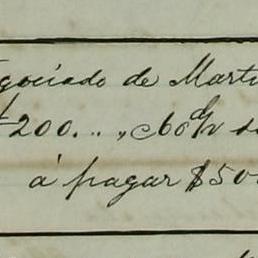 gociado de Marti
200. .. „ 60 d/v
á pagar $ 500